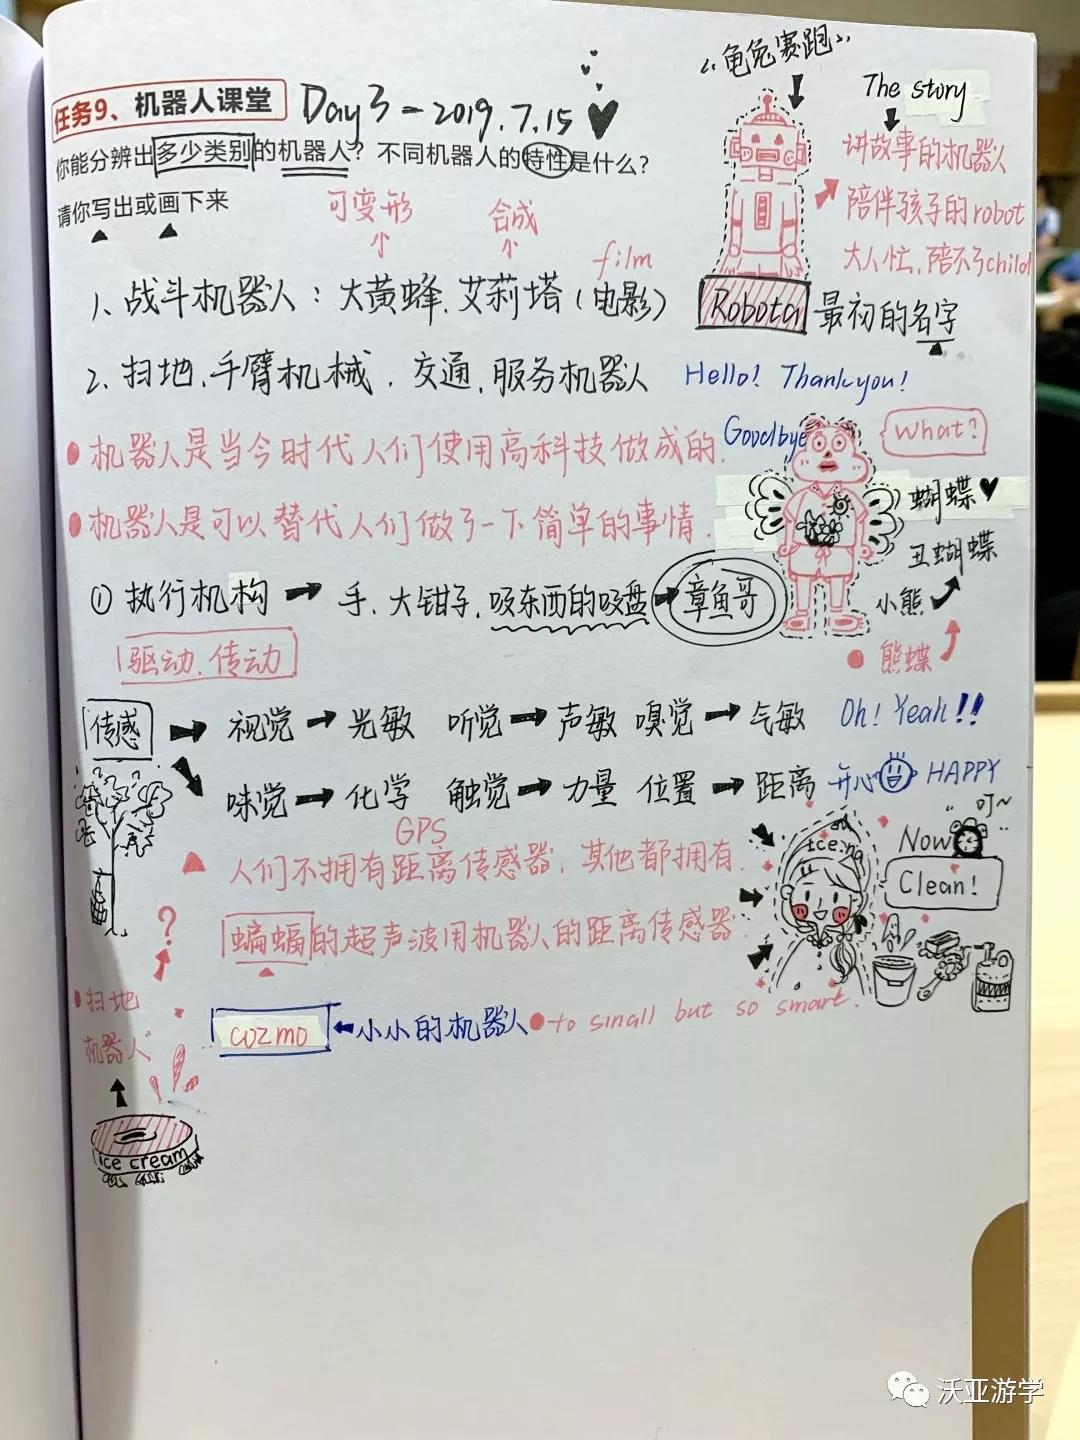 “龟兔赛跑”
任务9、机器人课堂 Day 3 - 2019.7.15
The story
你能分辨出多少类别的机器人？不同机器人的特性是什么？
讲故事的机器人
请你写出或画下来
可变形 合成
陪伴孩子的robot
film
大人忙，陪不了child
1、战斗机器人：大黄蜂、艾莉塔（电影）
Robota 最初的名字
2、扫地、手臂机械、交通、服务机器人 Hello! Thank you!
Goodbye
What?
机器人是当今时代人们使用高科技做成的.
蝴蝶
机器人是可以替代人们做了一下简单的事情.
丑蝴蝶
① 执行机构 手、大钳子、吸东西的吸盘 章鱼哥
小熊
驱动、传动
熊蝶
传感 视觉 光敏 听觉 声敏 嗅觉 气敏 Oh! Yeah!!
味觉 化学 触觉 力量 位置 距离 开心 HAPPY
“叮~
GPS
Now
人们不拥有距离传感器，其他都拥有.
Clean!
?
蝙蝠的超声波用机器人的距离传感器
扫地
机器人
cozmo 小小的机器人 to small but so smart.
ice cream
沃亚游学